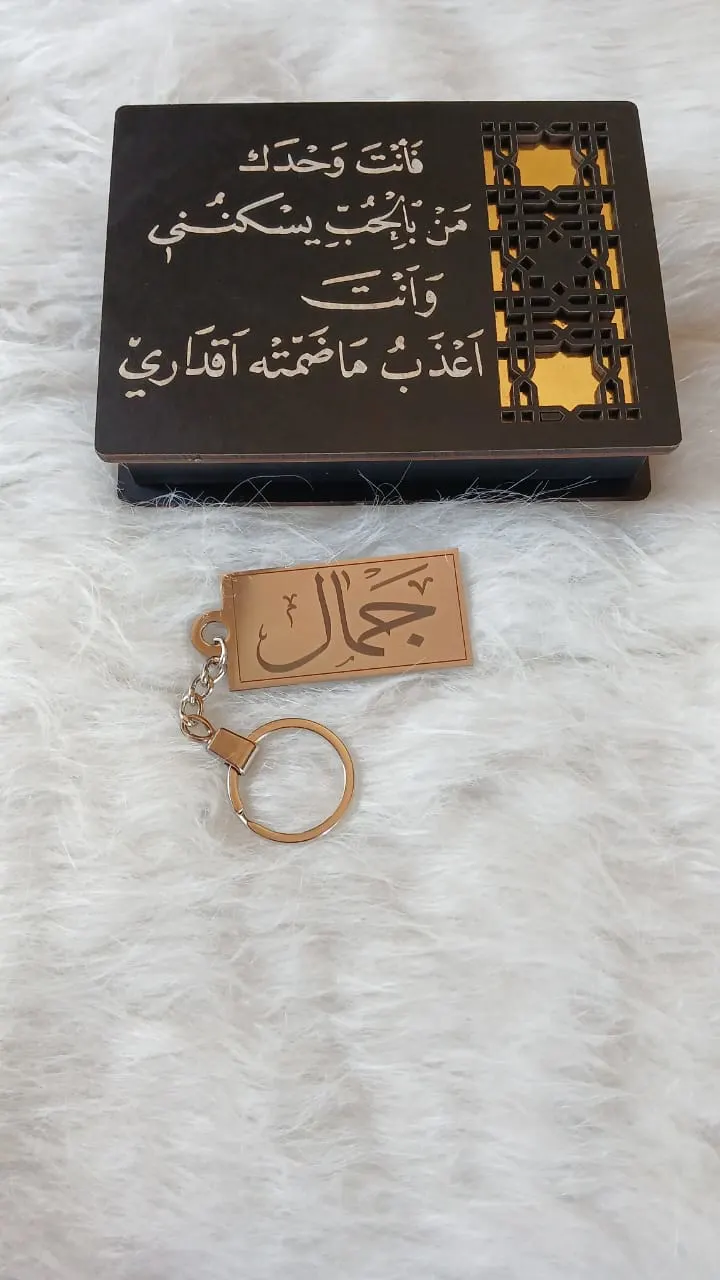 فَأَنْتَ وَحْدَك
مَنْ بِالْحُبِّ يسْكنُني
وَاَنْتَ
اَعْذَبُ مَا ضَمَّتْه اَقدَاريّ
جَمَال